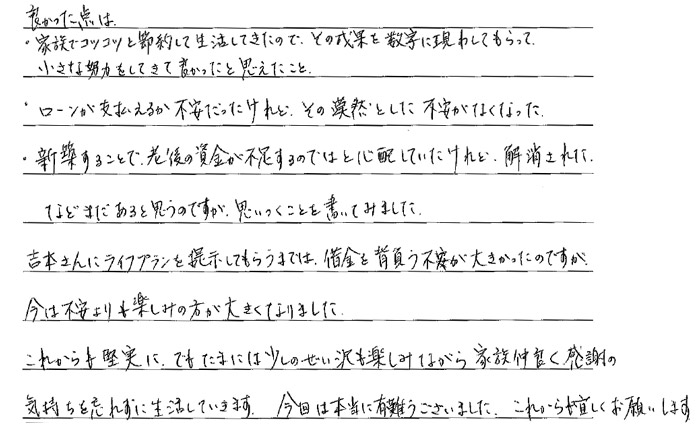 良かった点は、
・家族でコツコツと節約して生活してきたので、その成果を数字に現わしてもらって、
小さな努力をしてきて良かったと思えたこと。
・ローンが支払えるか不安だったけれど、その漠然とした不安がなくなった。
・新築することで、老後の資金が不足するのではと心配していたけれど、解消された。
などまだあると思うのですが、思いつくことを書いてみました。
吉本さんにライフプランを提示してもらうまでは、借金を背負う不安が大きかったのですが
今は不安よりも楽しみの方が大きくなりました。
これからも堅実に、でもたまには少しのぜい沢も楽しみながら家族仲良く感謝の
気持ちを忘れずに生活していきます。今回は本当に有難うございました。これからも宜しくお願いします